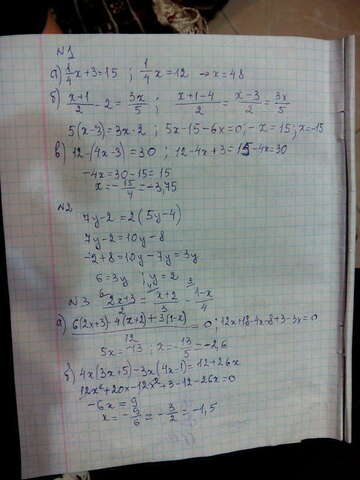 N1
а) 1/4 x+3=15 ; 1/4 x=12 → x=48
б) x+1/2 - 2 = 3x/5 ; x+1-4/2 = x-3/2 = 3x/5
5(x-3)=3x·2 ; 5x-15-6x=0; -x=15; x=-15
в) 12-(4x-3)=30 ; 12-4x+3=15-4x=30
-4x=30-15=15
x=-15/4=-3,75
N2
7y-2=2(5y-4)
7y-2=10y-8
-2+8=10y-7y=3y
6=3y ; y=2
N3
а) 2x+3/2 = x+2/3 - 1-x/4
6(2x+3)-4(x+2)+3(1-x)/12 = 0 · 12x+18-4x-8+3-3x=0
5x=-13 ; x=-13/5=-2,6
б) 4x(3x+5)-3x(4x-1)=12+26x
12x²+20x-12x²+3-12-26x=0
-6x=9
x=-9/6=-3/2=-1,5